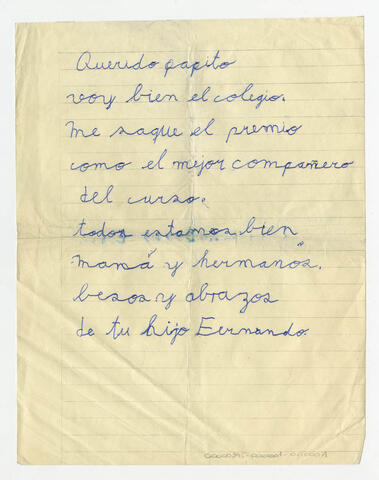 Querido papito
voy bien el colegio.
me saque el premio
como el mejor compañero
del curso.
todos estamos bien
mamá y hermanos.
besos y abrazos
de tu hijo Fernando.